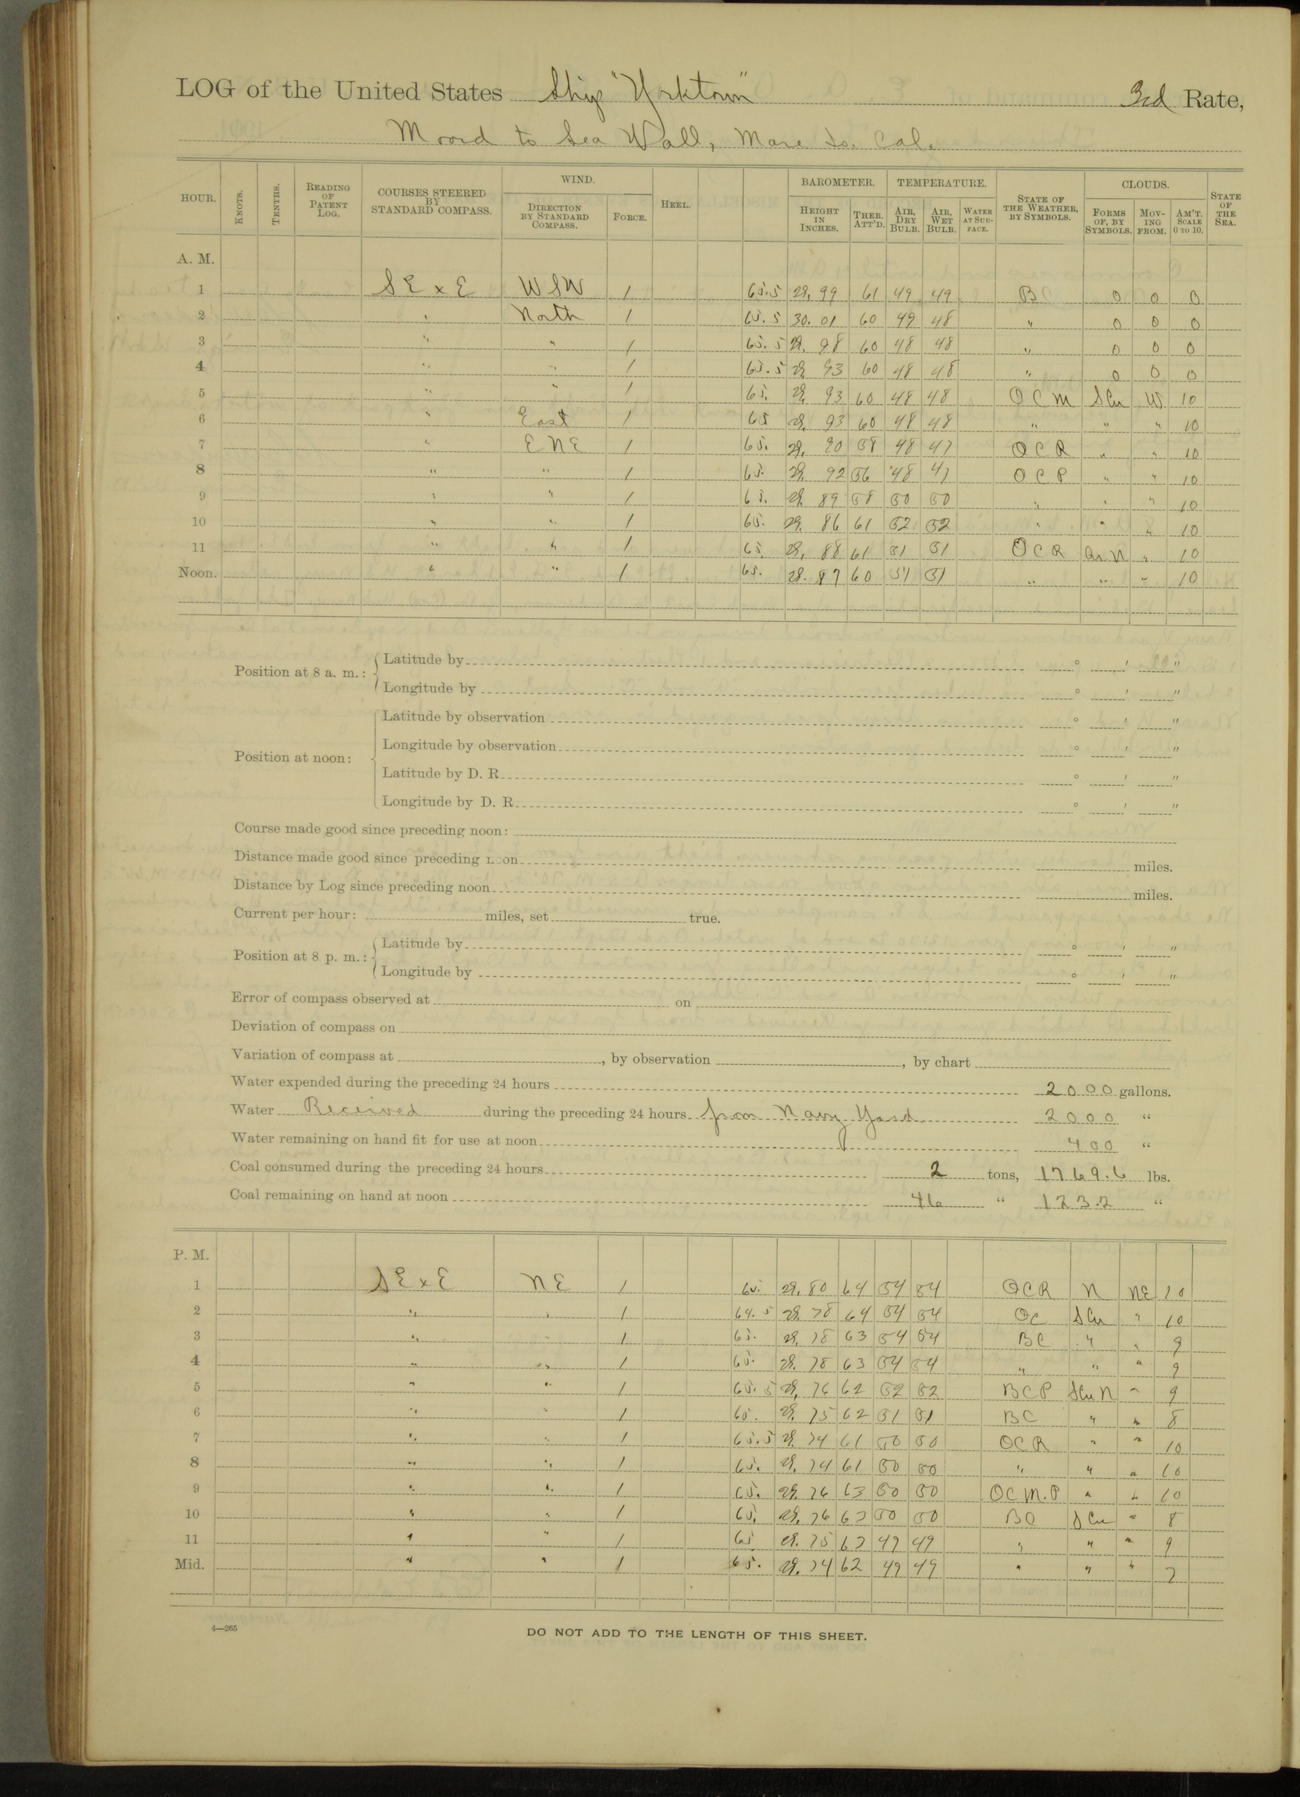 LOG of the United States Ship "Yorktown" 3rd Rate,
Moored to Sea Wall, Mare Is. Cal.
HOUR. KNOTS. TENTHS. READING OF PATENT LOG. COURSES STEERED BY STANDARD COMPASS. WIND. DIRECTION BY STANDARD COMPASS. FORCE. HEEL. BAROMETER. HEIGHT IN INCHES. THER. ATT'D. TEMPERATURE. AIR, DRY BULB. AIR, WET BULB. WATER AT SURFACE. STATE OF THE WEATHER, BY SYMBOLS. CLOUDS. FORMS OF, BY SYMBOLS. MOVING FROM. AM'T. SCALE 0 TO 10. STATE OF THE SEA.
A. M.
1 SE x E WSW 1 65.5 29.99 61 49 49 BC 0 0 0
2 " North 1 65.5 30.01 60 49 48 " 0 0 0
3 " " 1 65.5 29.98 60 48 48 " 0 0 0
4 " " 1 65.5 29.93 60 48 48 " 0 0 0
5 " " 1 65. 29.93 60 48 48 OCM SCu W 10
6 " East 1 65 29.93 60 48 48 " " " 10
7 " ENE 1 65. 29.90 58 48 47 OCR " " 10
8 " " 1 65. 29.92 56 48 47 OCP " " 10
9 " " 1 65. 29.89 58 50 50 " " " 10
10 " " 1 65. 29.86 61 52 52 " " " 10
11 " " 1 65. 29.88 61 51 51 OCR Cu N " 10
Noon. " " 1 65. 29.87 60 51 51 " " " 10
Position at 8 a. m.: Latitude by ° ' "
Longitude by ° ' "
Position at noon: Latitude by observation ° ' "
Longitude by observation ° ' "
Latitude by D. R. ° ' "
Longitude by D. R. ° ' "
Course made good since preceding noon:
Distance made good since preceding noon miles.
Distance by Log since preceding noon miles.
Current per hour: miles, set true.
Position at 8 p. m.: Latitude by ° ' "
Longitude by ° ' "
Error of compass observed at on
Deviation of compass on
Variation of compass at , by observation , by chart
Water expended during the preceding 24 hours 2000 gallons.
Water Received during the preceding 24 hours from Navy Yard 2000 "
Water remaining on hand fit for use at noon 400 "
Coal consumed during the preceding 24 hours 2 tons, 1769.6 lbs.
Coal remaining on hand at noon 46 " 123.2 "
P. M.
1 SE x E NE 1 65. 29.80 64 54 54 OCR N NE 10
2 " " 1 64.5 29.78 64 54 54 OC SCu " 10
3 " " 1 65. 29.78 63 54 54 BC " " 9
4 " " 1 65. 29.78 63 54 54 " " " 9
5 " " 1 65.5 29.76 62 52 52 BCP SCu N " 9
6 " " 1 65. 29.75 62 51 51 BC " " 8
7 " " 1 65.5 29.74 61 50 50 OCR " " 10
8 " " 1 65. 29.74 61 50 50 " " " 10
9 " " 1 65. 29.76 63 50 50 OCM.P " " 10
10 " " 1 65. 29.76 63 50 50 BC SCu " 8
11 " " 1 65 29.75 63 49 49 " " " 9
Mid. " " 1 65. 29.74 62 49 49 " " " 7
4—265
DO NOT ADD TO THE LENGTH OF THIS SHEET.